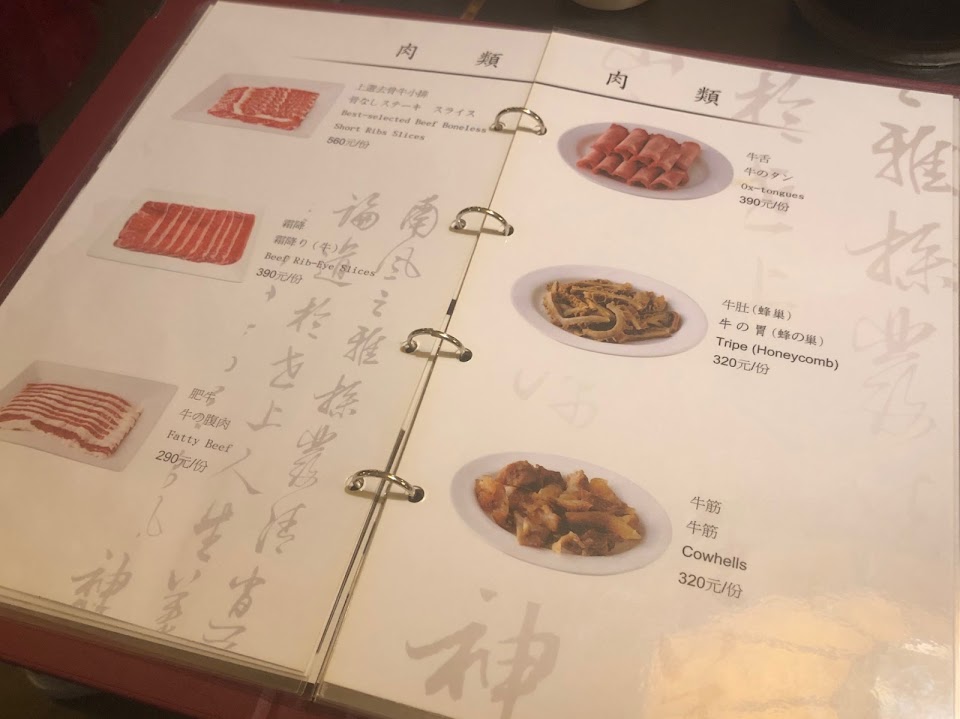 肉 類
上選去骨牛小排
骨なしステーキ スライス
Best-selected Beef Boneless
Short Ribs Slices
560元/份
霜降
霜降り(牛)
Beef Rib-Eye Slices
390元/份
肥牛
牛の腹肉
Fatty Beef
290元/份
肉 類
牛舌
牛のタン
Ox-tongues
390元/份
牛肚(蜂巢)
牛の胃(蜂の巣)
Tripe (Honeycomb)
320元/份
牛筋
牛筋
Cowhells
320元/份
神